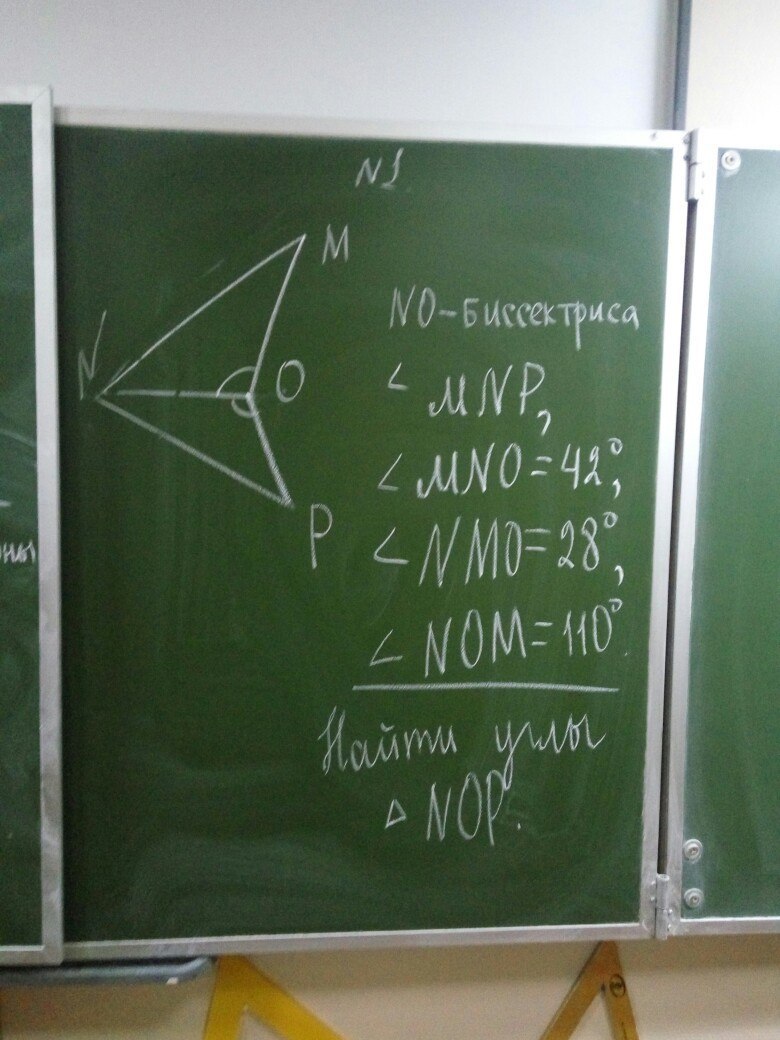 N1.
M
N
O
P
NO-биссектриса
∠ MNP,
∠ MNO=42°,
∠ NMO=28°,
∠ NOM=110°.
Найти углы
△ NOP.
ны